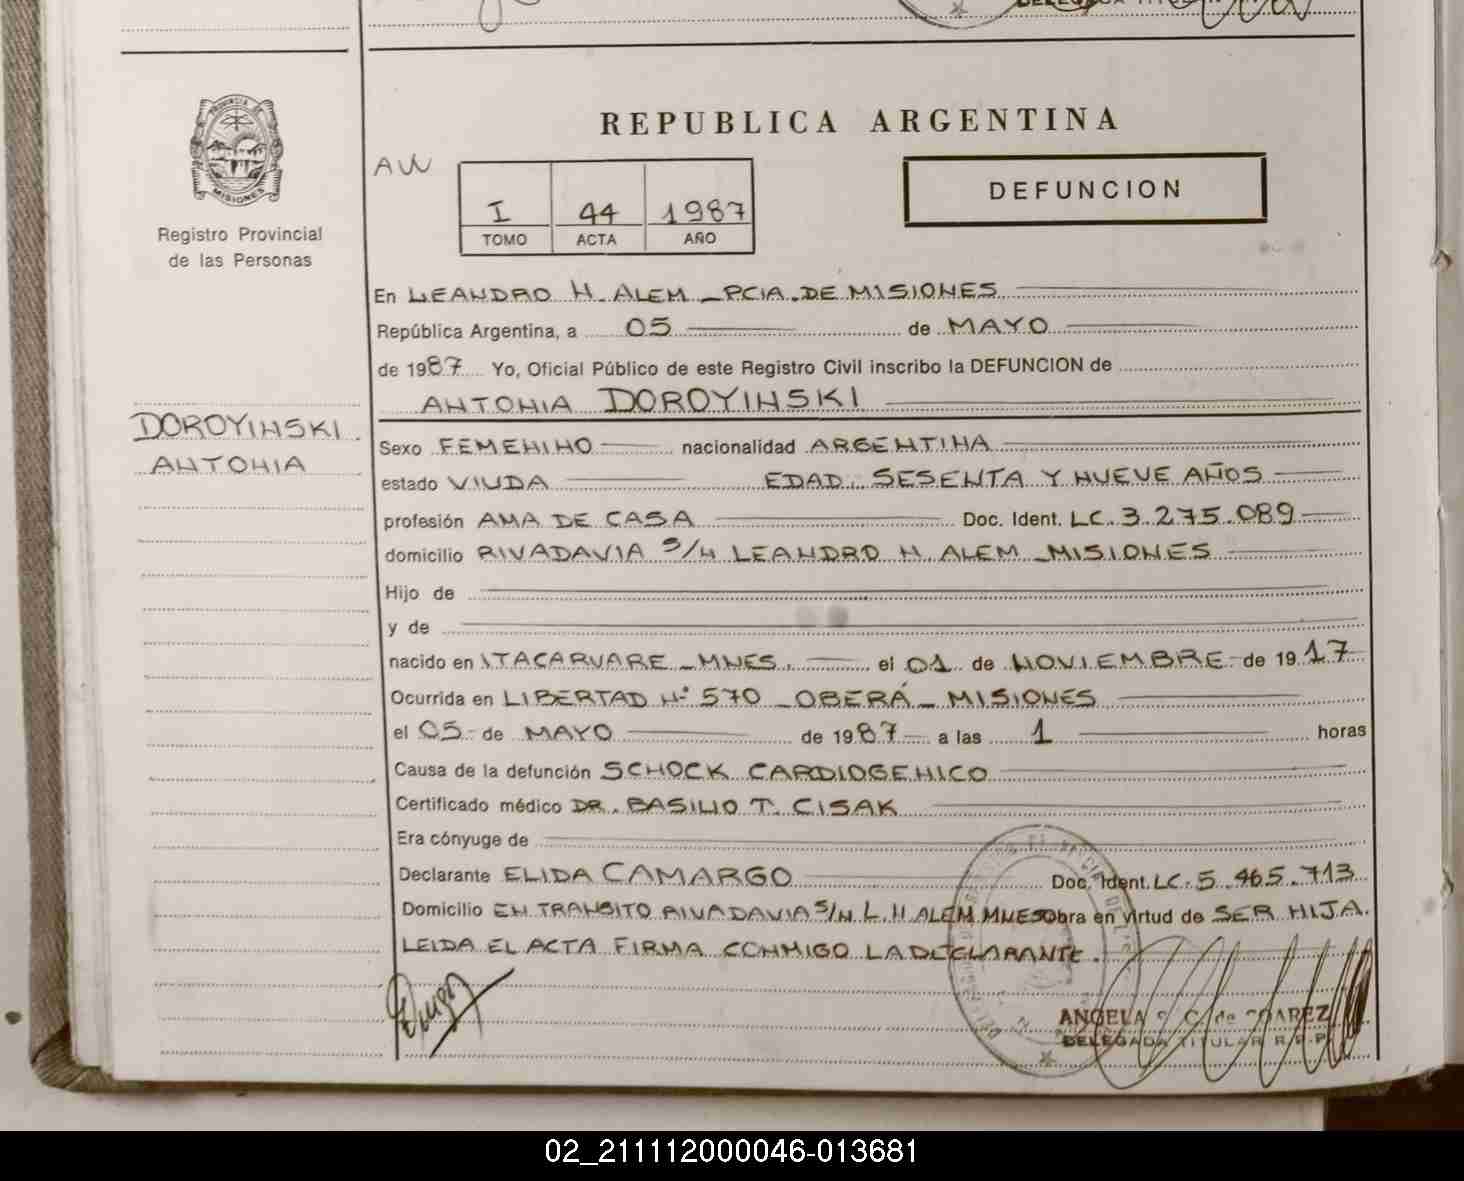 REPUBLICA ARGENTINA
PROVINCIA DE
MISIONES
Registro Provincial
de las Personas
AW
I 44 1987
TOMO ACTA AÑO
DEFUNCION
En LEANDRO N. ALEM - PCIA. DE MISIONES
República Argentina, a 05 de MAYO
de 1987 Yo, Oficial Público de este Registro Civil inscribo la DEFUNCION de
ANTONIA DOROYINSKI
DOROYINSKI
ANTONIA
Sexo FEMENINO nacionalidad ARGENTINA
estado VIUDA EDAD. SESENTA Y NUEVE AÑOS
profesión AMA DE CASA Doc. Ident. LC. 3.275.089
domicilio RIVADAVIA S/N LEANDRO N. ALEM - MISIONES
Hijo de
y de
nacido en ITACARUARE - MNES. el 01 de NOVIEMBRE de 1917
Ocurrida en LIBERTAD Nº 570 - OBERÁ - MISIONES
el 05 de MAYO de 1987 a las 1 horas
Causa de la defunción SCHOCK CARDIOGENICO
Certificado médico DR. BASILIO T. CISAK
Era cónyuge de
Declarante ELIDA CAMARGO Doc. Ident. LC. 5.465.713
Domicilio EN TRANSITO RIVADAVIA S/N L. N ALEM MNES Obra en virtud de SER HIJA.
LEIDA EL ACTA FIRMA CONMIGO LA DECLARANTE.
ANGELA S. C. de SOAREZ
DELEGADA TITULAR R.P.P.
02_211112000046-013681